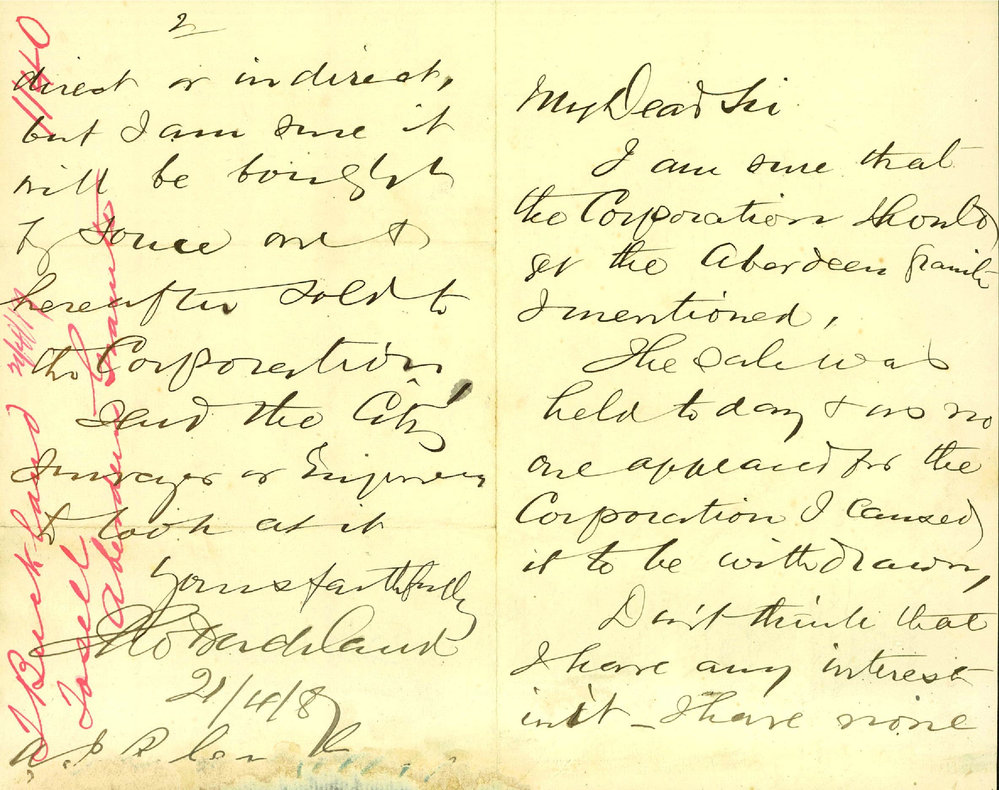 My Dear Sir
I am sure that
the Corporation should
get the Aberdeen Granite
I mentioned,
The sale was
held today & as no
one appeared for the
Corporation I caused
it to be withdrawn,
Don't think that
I have any interest
in it - I have none
2
direct or indirect,
but I am sure it
will be bought
by some one &
hereafter sold to
the Corporation,
Send the City
Surveyor or Engineer
to look at it
Yours faithfully
Tho Buckland
21/4/87
1140
J Buckland
To sell
Aberdeen Granite